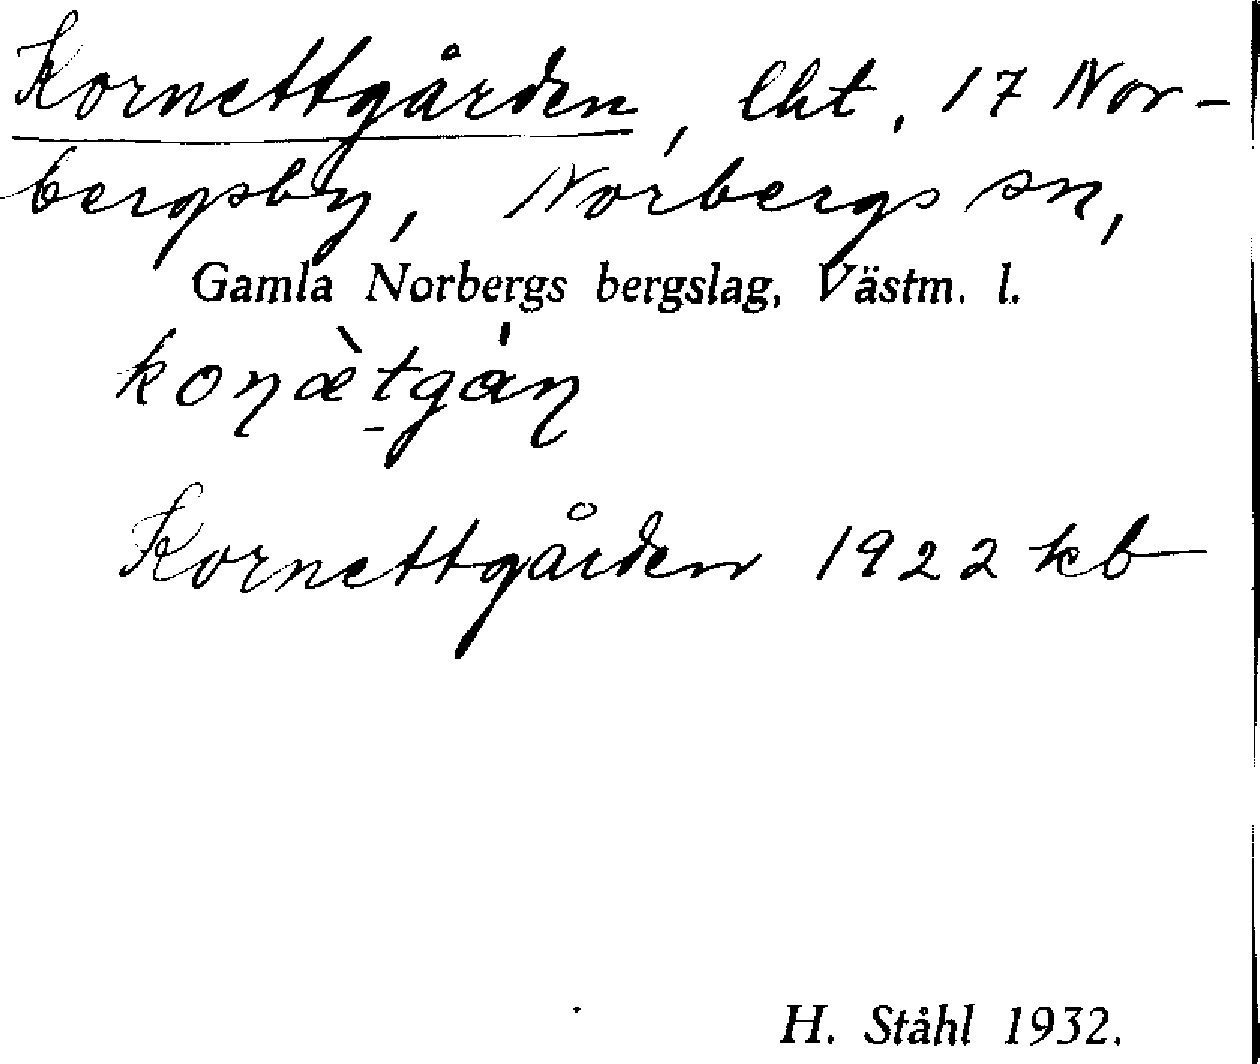 Kornettgården, lht, 17 Nor-
bergsby, Norbergs sn,
Gamla Norbergs bergslag, Västm. l.
koɳæ̀tgáɳ
Kornettgården 1922 kb
H. Ståhl 1932.